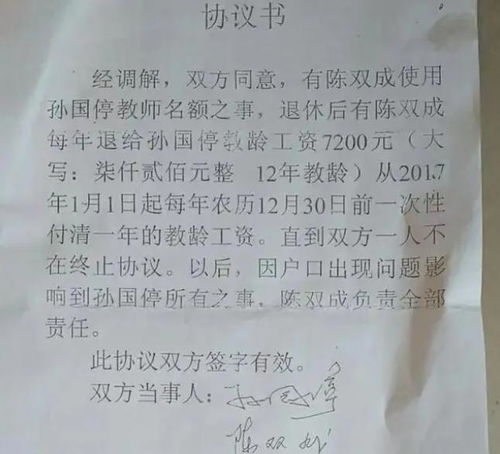 协议书
经调解，双方同意，有陈双成使用
孙国停教师名额之事，退休后有陈双成
每年退给孙国停教龄工资7200元（大
写：柒仟贰佰元整 12年教龄）从2017
年1月1日起每年农历12月30日前一次性
付清一年的教龄工资。直到双方一人不
在终止协议。以后，因户口出现问题影
响到孙国停所有之事，陈双成负责全部
责任。
此协议双方签字有效。
双方当事人：孙国停
陈双成